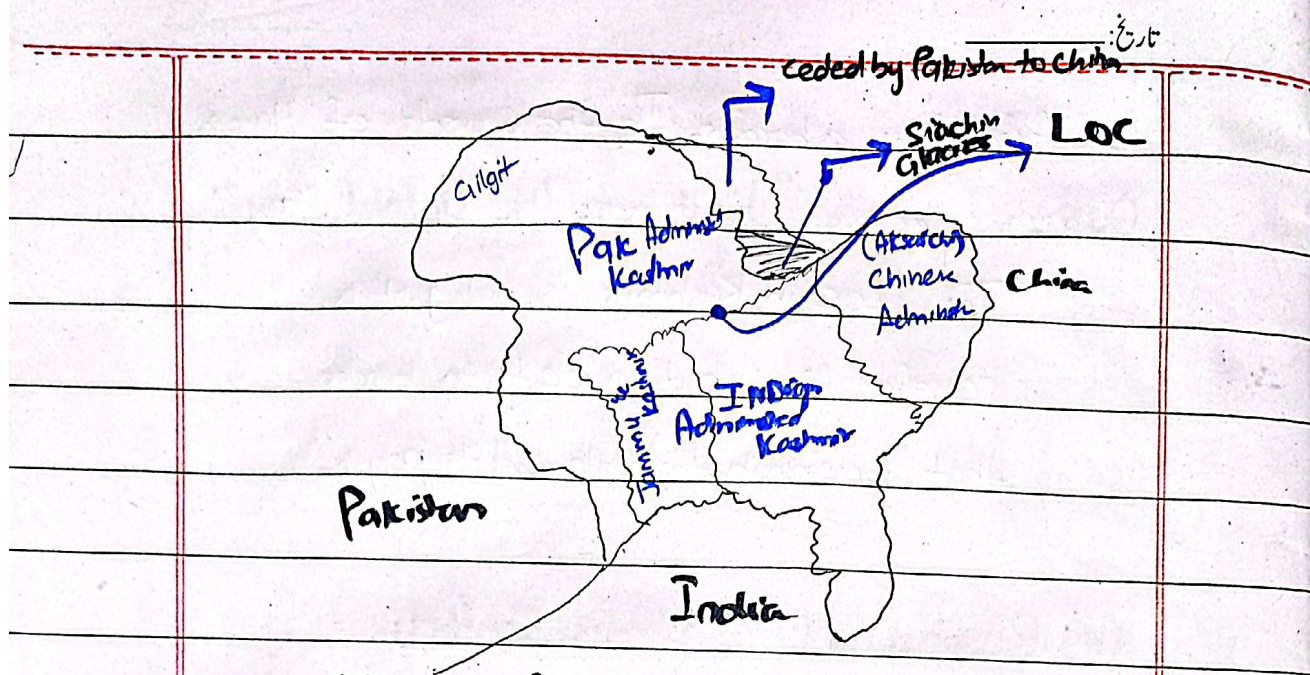 تاریخ:
ceded by Pakistan to China
Siachin
Glacies
LOC
Gilgit
Pak Administ
Kashmir
(Aksaichi)
Chinese
Administ
China
Jammu & Kashmir
INDian
Administed
Kashmir
Pakistan
India